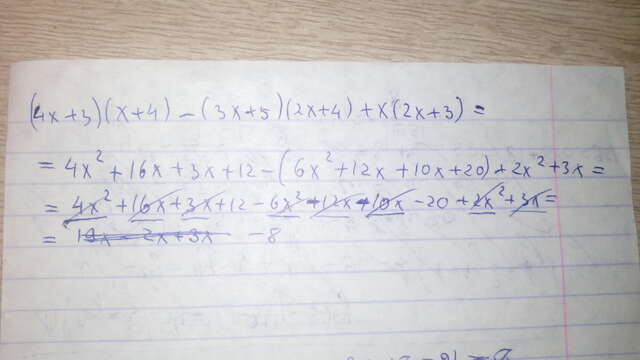 (4x+3)(x+4) - (3x+5)(2x+4) + x(2x+3) =
= 4x² + 16x + 3x + 12 - (6x² + 12x + 10x + 20) + 2x² + 3x =
= 4x² + 16x + 3x + 12 - 6x² - 12x - 10x - 20 + 2x² + 3x =
= - 8